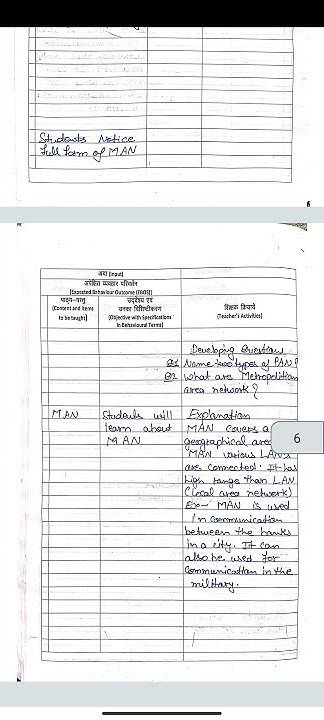 Students Notice
full form of MAN
अदा [Input]
अपेक्षित व्यवहार परिवर्तन
[Expected Behaviour Outcome (EBOS)]
पाठ्य-वस्तु
(Content and items
to be taught)
उद्देश्य एवं
उनका विशिष्टीकरण
(Objective with Specifications
in Behavioural Terms)
शिक्षक क्रियायें
(Teacher's Activities)
Developing Questions
Q1 Name two types of PAN?
Q2 What are Metropolitian
area network?
MAN
Students will
learn about
MAN
Explanation
MAN covers a
geographical area
MAN various LAN's
are connected. It has
high range than LAN
(local area network)
Ex- MAN is used
in communication
between the banks
in a city. It can
also be used for
Communication in the
military.
6